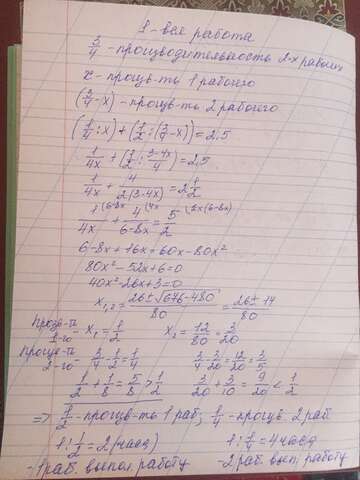 1 - вся работа
3/4 - производительность 2-х рабочих
x - произв-ть 1 рабочего
(3/4 - x) - произв-ть 2 рабочего
(1/4 : x) + (1/2 : (3/4 - x)) = 2,5
1/4x + (1/2 : 3-4x/4) = 2,5
1/4x + 4/2(3-4x) = 2 1/2
1 (6-8x/4x + 4 (4x/6-8x = 5 (2x(6-8x)/2
6-8x+16x=60x-80x²
80x²-52x+6=0
40x²-26x+3=0
x1,2 = 26±√676-480/80 = 26±14/80
произв-ть 1-го - x1 = 1/2 x2 = 12/80 = 3/20
произв-ть 2-го - 3/4 - 1/2 = 1/4 3/4 - 3/20 = 12/20 = 3/5
1/2 + 1/8 = 5/8 > 1/2 3/20 + 3/10 = 9/20 < 1/2
=> 1/2 - произв-ть 1 раб; 1/4 - произв. 2 раб
1 : 1/2 = 2 (часа) 1 : 1/4 = 4 часа
- 1 раб. выпол. работу - 2 раб. вып. работу